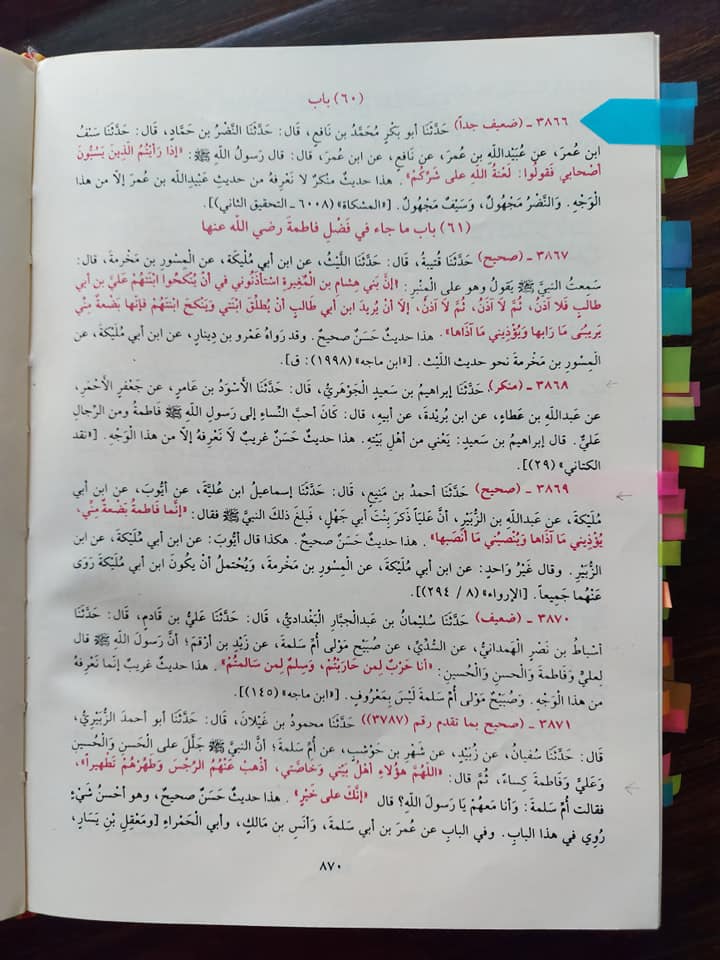 (٦٠) باب
٣٨٦٦ ـ (ضعيف جداً) حَدَّثَنَا أبو بَكْرٍ مُحَمَّدُ بن نَافِعٍ، قَالَ: حَدَّثَنَا النَّضْرُ بن حَمَّادٍ، قَالَ: حَدَّثَنَا سَيْفُ
ابن عُمرَ، عن عُبَيْدِاللَّه بن عُمرَ، عن نَافِعٍ، عن ابن عُمرَ، قال: قال رَسولُ اللَّهِ ﷺ: «إذا رَأَيْتُمُ الَّذِينَ يَسُبُّونَ
أصْحابي فَقُولُوا: لَعْنةُ اللَّهِ على شَرِّكُمْ». هذا حديثٌ منكرٌ لاَ نَعْرِفهُ من حديثِ عُبَيْدِاللَّه بن عُمرَ إلاّ من هذا
الْوَجْهِ. وَالنَّضْرُ مَجْهُولٌ، وَسَيْفٌ مَجْهُولٌ. [«المشكاة» (٦٠٠٨ ـ التحقيق الثاني)].
(٦١) باب ما جاء في فَضْلِ فاطمةَ رضي اللَّه عنها
٣٨٦٧ ـ (صحيح) حَدَّثَنَا قُتيبةُ، قَالَ: حَدَّثَنَا اللَّيْثُ، عن ابن أبي مُلَيْكَة، عن الْمِسْورِ بن مَخْرمةَ، قال:
سَمِعتُ النبيَّ ﷺ يقولُ وهو على الْمِنْبَرِ: «إنَّ بَنِي هِشامِ بن الْمُغِيرةِ اسْتأذَنُوني في أنْ يُنْكحُوا ابْنَتَهُمْ عَليَّ بن أبي
طالبٍ فَلا آذَنُ، ثُمَّ لاَ آذَنُ، ثُمَّ لاَ آذَنُ، إلاَ أنْ يُريدَ ابن أبي طالبٍ أنْ يُطَلِّقَ ابْنَتي وَيَنْكحَ ابْنَتَهُمْ فإنّها بَضْعةٌ مِنِّي
يَريبُني مَا رَابها وَيُؤْذيني مَا آذَاها». هذا حديثٌ حَسَنٌ صحيحٌ. وقد رَواهُ عَمْرو بن دِينارٍ، عن ابن أبي مُلَيْكَةَ، عن
الْمِسْورِ بن مَخْرمةَ نحو حديث اللَّيْث. [«ابن ماجه» (١٩٩٨): ق].
٣٨٦٨ ـ (منكر) حَدَّثَنَا إبراهيمُ بن سَعيدٍ الْجَوْهَرِيُّ، قَالَ: حَدَّثَنَا الأَسْوَدُ بن عامرٍ، عن جَعْفرٍ الأَحْمرِ،
عن عَبداللَّهِ بن عَطاءٍ، عن ابن بُريْدةَ، عن أبيه، قال: كَانَ أحبَّ النِّساءِ إلى رَسولِ اللَّهِ ﷺ فَاطمةُ ومن الرِّجالِ
عَليٌّ. قال إبراهيمُ بن سَعيدٍ: يَعْني من أهْلِ بَيْتِهِ. هذا حديثٌ حَسَنٌ غريبٌ لاَ نَعْرِفهُ إلاّ من هذا الْوَجْهِ. [«نقد
الكتاني» (٢٩)].
٣٨٦٩ ـ (صحيح) حَدَّثَنَا أحمدُ بن مَنِيعٍ، قَالَ: حَدَّثَنَا إسماعيلُ ابن عُلَيَّةَ، عن أيُّوبَ، عن ابن أبي
مُلَيْكةَ، عن عَبداللَّهِ بن الزُّبَيْرِ، أنَّ عَليّاً ذَكرَ بِنْتَ أبي جَهْلٍ، فَبلغَ ذَلكَ النبيَّ ﷺ فقال: «إنَّما فَاطمةُ بَضْعةٌ مِنِّي،
يُؤْذِيني مَا آذَاها وَيُنْصِبُني مَا أنْصَبها». هذا حديثٌ حَسَنٌ صحيحٌ. هكذا قال أيُّوبُ: عن ابن أبي مُلَيْكةَ، عن ابن
الزُّبَيْرِ. وقال غَيْرُ وَاحدٍ: عن ابن أبي مُلَيْكةَ، عن الْمِسْورِ بن مَخْرمةَ، وَيُحْتَملُ أنْ يَكُونَ ابن أبي مُلَيْكةَ رَوَى
عَنْهُما جَمِيعاً. [الإرواء» (٨ / ٢٩٤)].
٣٨٧٠ ـ (ضعيف) حَدَّثَنَا سُليْمانُ بن عَبدالجَبَّارِ الْبَغْداديُّ، قَالَ: حَدَّثَنَا عَليُّ بن قَادمٍ، قَالَ: حَدَّثَنَا
أسْباطُ بن نَصْرٍ الْهَمدانيُّ، عن السُّدِّيِّ، عن صُبَيْحٍ مَوْلى أُمِّ سَلمةَ، عن زَيْدِ بن أرْقمَ؛ أنَّ رَسولَ اللَّهِ ﷺ قال
لِعليٍّ وَفَاطمةَ وَالْحسنِ وَالْحُسينِ: «أنا حَرْبٌ لِمن حَاربْتُمْ، وَسِلمٌ لِمن سَالمتُمْ». هذا حديثٌ غريبٌ إنَّما نَعْرِفهُ
من هذا الْوَجْهِ. وَصُبَيْحٌ مَوْلى أُمِّ سَلمةَ لَيْسَ بِمَعْرُوفٍ. [«ابن ماجه» (١٤٥)].
٣٨٧١ ـ (صحيح بما تقدم رقم (٣٧٨٧)) حَدَّثَنَا محمودُ بن غَيْلانَ، قَالَ: حَدَّثَنَا أبو أحمدَ الزُّبيريُّ،
قَالَ: حَدَّثَنَا سُفيانُ، عن زُبَيْدٍ، عن شَهْرِ بن حَوْشَبٍ، عن أُمِّ سَلمةَ؛ أنَّ النبيَّ ﷺ جَلَّلَ على الْحَسنِ وَالْحُسينِ
وَعَليٍّ وَفَاطمةَ كِساءً، ثُمَّ قال: «اللَّهُمَّ هؤُلاءِ أهْلُ بَيْتي وَخَاصَّتي، أذْهبْ عَنْهُمُ الرِّجْسَ وَطَهِّرْهُمْ تَطْهيراً»،
فقالت أُمُّ سَلمةَ: وَأنا مَعهُمْ يَا رَسولَ اللَّهِ؟ قال «إنَّكِ على خَيْرٍ». هذا حديثٌ حَسَنٌ صحيحٌ، وهو أحْسنُ شَيْءٍ
رُوِي في هذا البابِ. وفي البابِ عن عُمرَ بن أبي سَلمةَ، وَأنَسِ بن مَالكٍ، وأبي الْحَمْراءِ [ومَعْقِلِ بْنِ يَسَارٍ،
٨٧٠